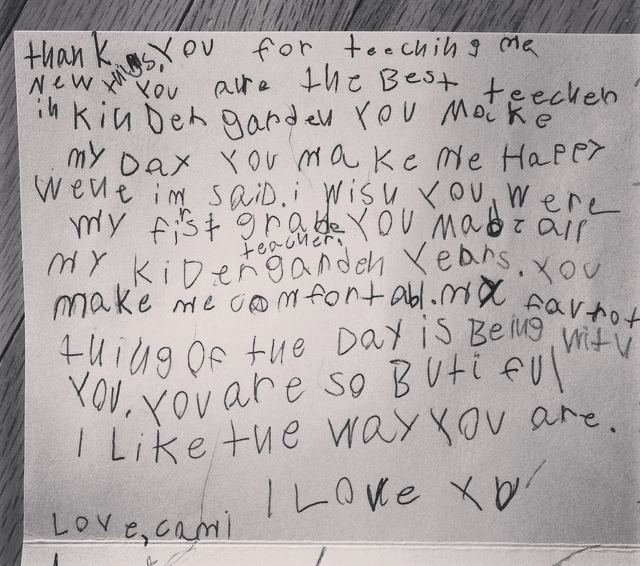 thank YOU for teeching me
New things. YOU are the Best teecher
in KinDer garden YOU Make
my DaY YOU ma ke me HappY
Wene im said. i wish YOU were
my first grade teacher. YOU made all
my KiDengarden Years. YOU
make me comfortabl. mY favrot
thing of the DaY is Being with
YOU. YOU are so Butiful
I Like the way YOU are.
I Love
Love, cami